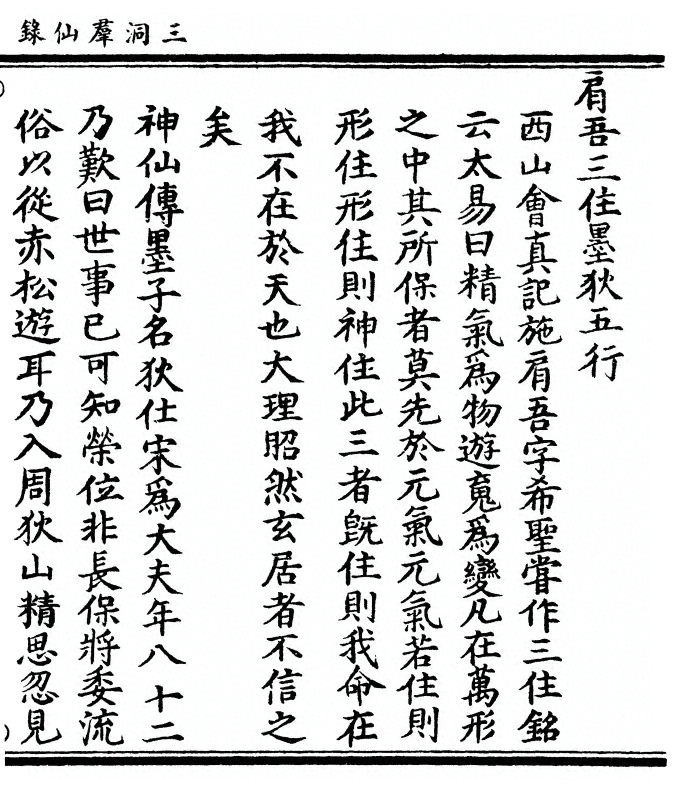 三洞羣仙錄
肩吾三住墨狄五行
西山會真記施肩吾字希聖嘗作三住銘
云太易曰精氣為物遊䰟為變凡在萬形
之中其所保者莫先於元氣元氣若住則
形住形住則神住此三者旣住則我命在
我不在於天也大理昭然玄居者不信之
矣
神仙傳墨子名狄仕宋為大夫年八十二
乃歎曰世事已可知榮位非長保將委流
俗以從赤松遊耳乃入周狄山精思忽見